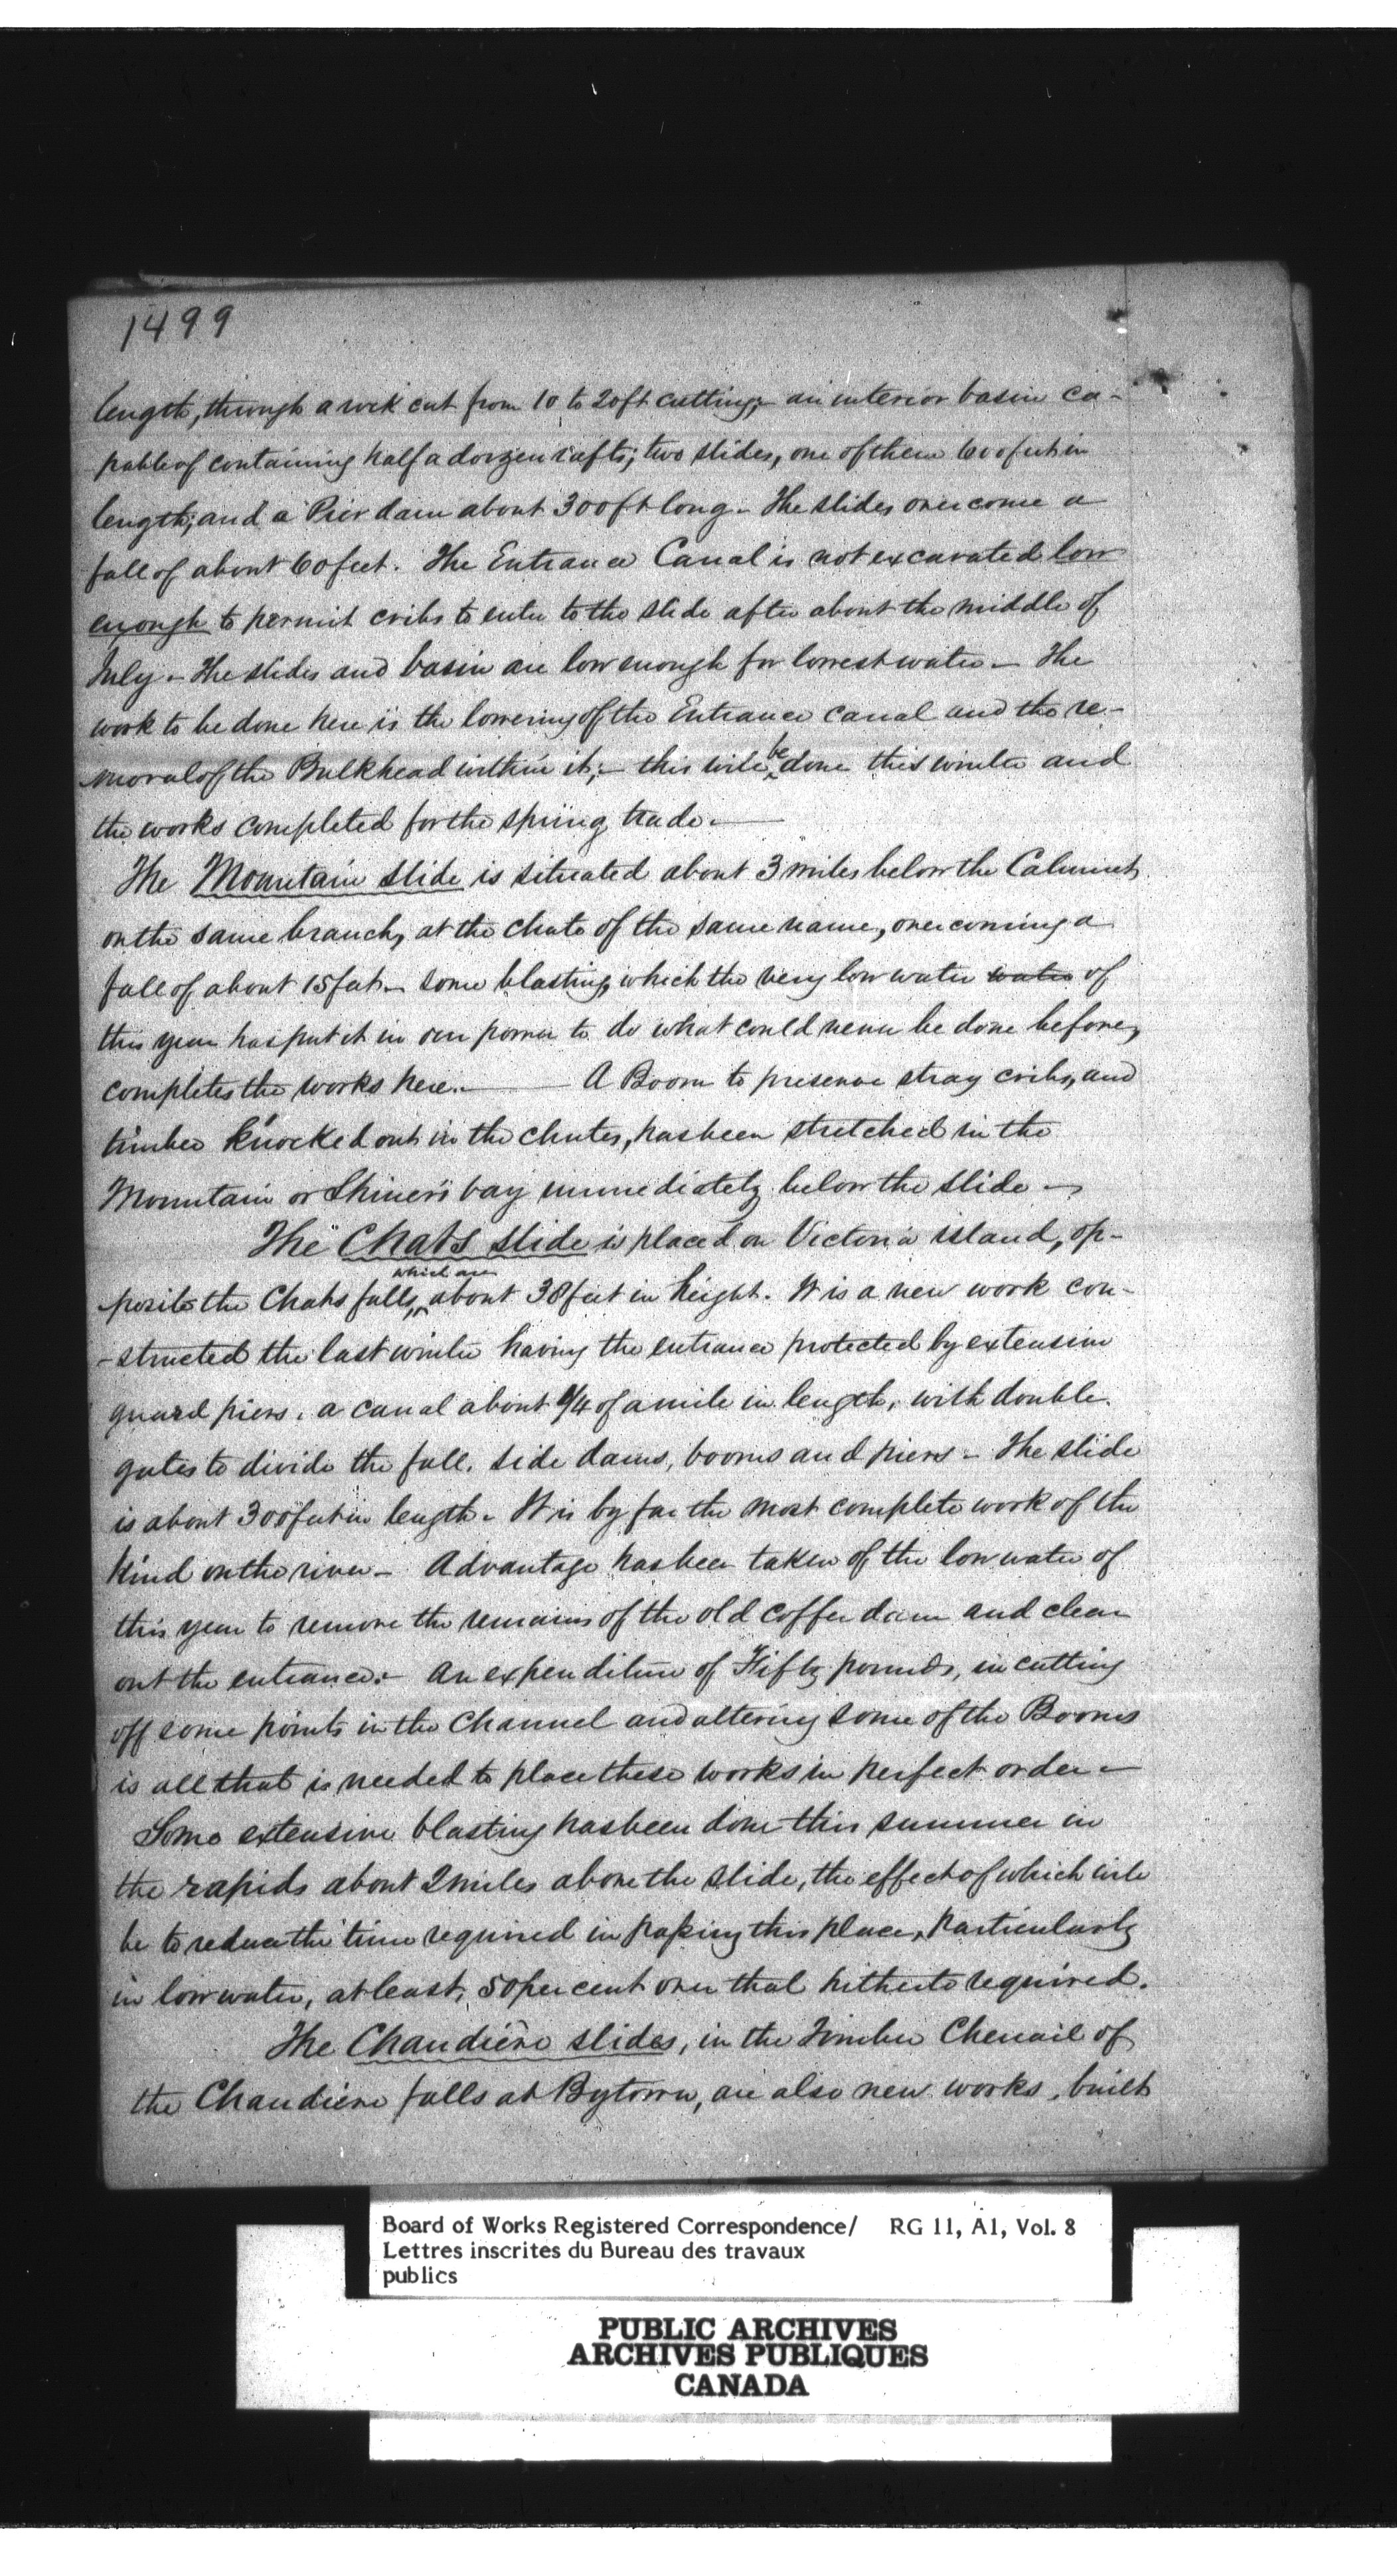 1499
length, through a rock cut from 10 to 20ft cutting;- an interior basin ca-
pable of containing half a dozzen rafts; two slides, one of them 600 feet in
length; and a Pier dam about 300ft long - The slides overcome a
fall of about 60 feet. The Entrance Canal is not excavated low
enough to permit cribs to enter to the slide after about the middle of
July - The slides and basin are low enough for lowest water - The
work to be done here is the lowering of the Entrance canal and the re-
moval of the Bulkhead within it;- this will be done this winter and
the works completed for the spring trade.-
The Mountain slide is situated about 3 miles below the Calumet,
on the same branch, at the chute of the same name, overcoming a
fall of about 15 feet - some blasting, which the very low water water of
this year has put it in our power to do what could never be done before,
completes the works here.- A Boom to preserve stray cribs, and
timber knocked out in the chutes, has been stretched in the
Mountain or Skiner's bay immediately below the slide -
The Chats slide is placed on Victoria island, op-
which are
posite the Chats falls, about 38 feet in height. It is a new work con-
-structed the last winter having the entrance protected by extensive
guard piers, a canal about 1/4 of a mile in length, with double
gates to divide the fall, side dams, booms and piers - The slide
is about 300 feet in length - It is by far the most complete work of the
kind on the river - Advantage has been taken of the low water of
this year to remove the remains of the old coffer dam and clear
out the entrance:- An expenditure of Fifty pounds, in cutting
off some points in the Channel and altering some of the Booms
is all that is needed to place these works in perfect order -
Some extensive blasting has been done this summer in
the rapids about 2 miles above the slide, the effect of which will
be to reduce the time required in passing this place, particularly
in low water, at least, 50 per cent over that hitherto required.
The Chaudière slides, in the Timber Chenail of
the Chaudiere falls at Bytown, are also new works, built
Board of Works Registered Correspondence/ RG 11, A1, Vol. 8
Lettres inscrites du Bureau des travaux
publics
PUBLIC ARCHIVES
ARCHIVES PUBLIQUES
CANADA